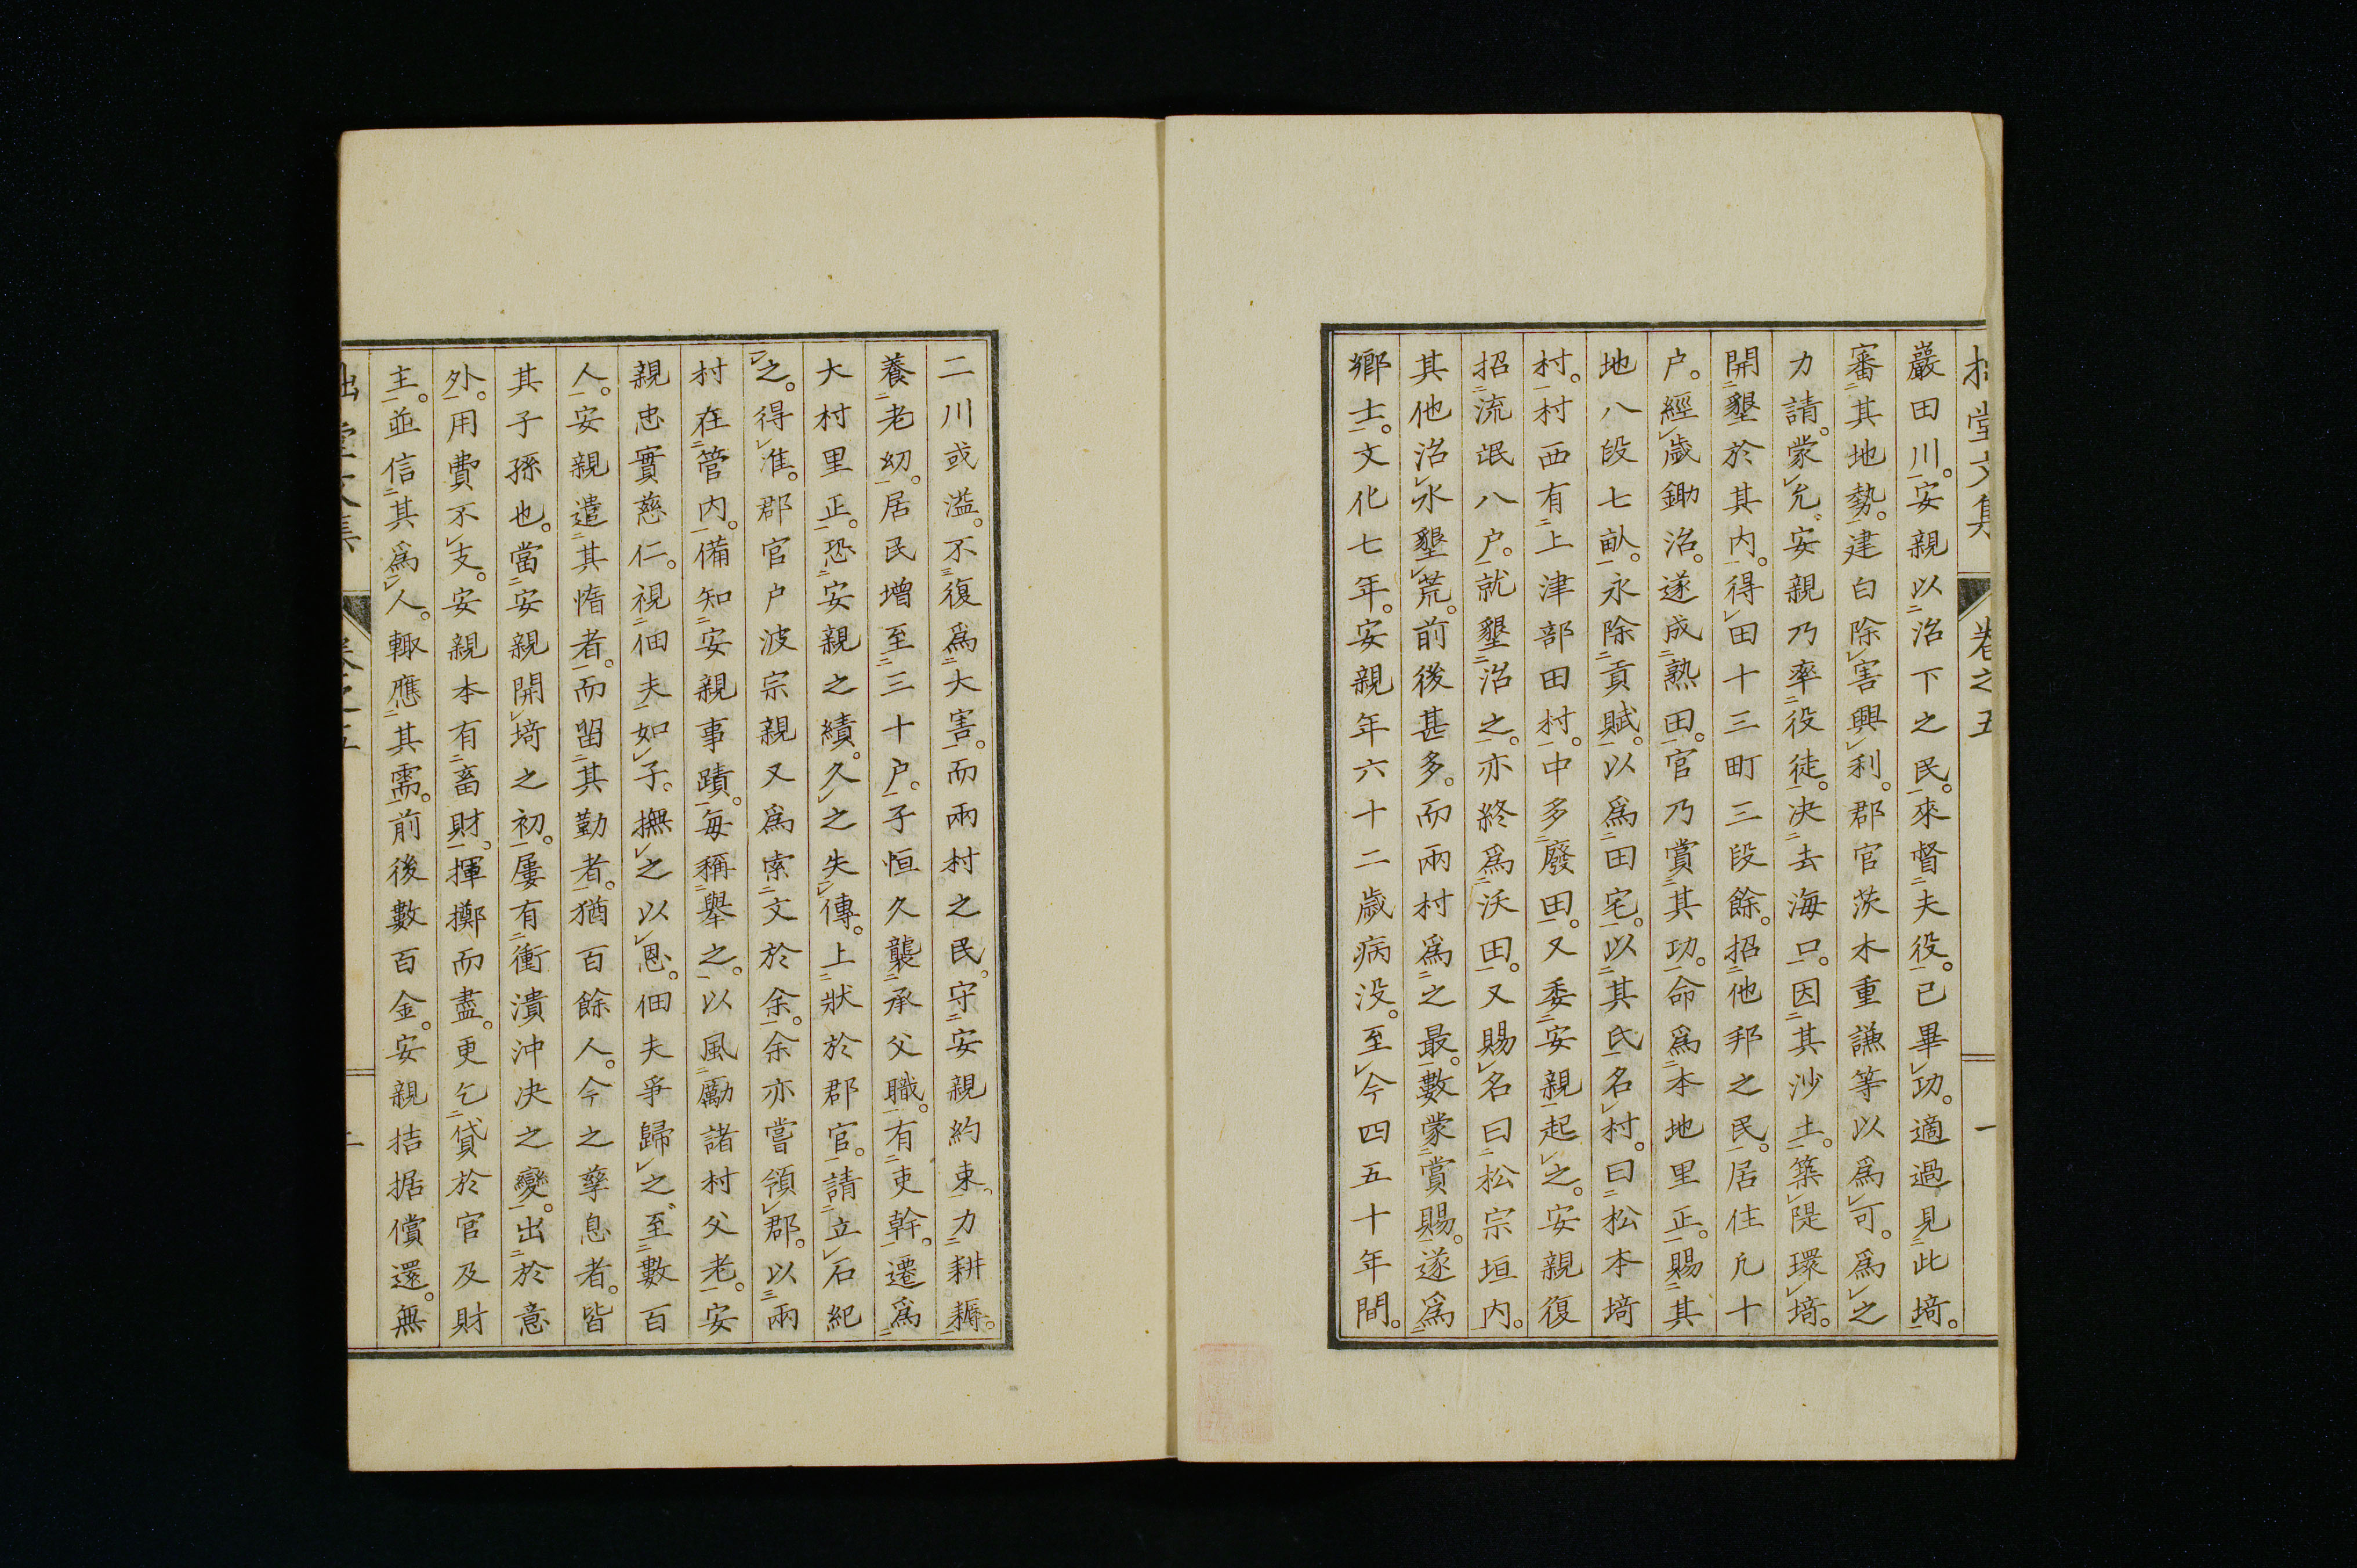 拙堂文集 卷之五 一
巖田川。安親以治下之民。來督夫役。已畢功。適過見此埼。
審其地勢。建白除害興利。郡官茨木重謙等以爲可。爲之
力請。蒙允。安親乃率役徒。決去海口。因其沙土。築隄環埼。
開墾於其內。得田十三町三段餘。招他邦之民。居住凡十
户。經歲鋤治。遂成熟田。官乃賞其功。命爲本地里正。賜其
地八段七畝。永除貢賦。以爲田宅。以其氏名村。曰松本埼
村。村西有上津部田村。中多廢田。又委安親起之。安親復
招流氓八户。就墾治之。亦終爲沃田。又賜名曰松宗垣內。
其他沼水墾荒。前後甚多。而兩村爲之最。數蒙賞賜。遂爲
鄉士。文化七年。安親年六十二歲病没。至今四五十年間。
二川或溢。不復爲大害。而兩村之民。守安親約束。力耕耨。
養老幼。居民增至三十户。子恒久襲承父職。有吏幹。遷爲
大村里正。恐安親之績。久之失傳。上狀於郡官。請立石紀
之。得准。郡官户波宗親又爲索文於余。余亦嘗領郡。以兩
村在管內。備知安親事蹟。每稱舉之。以風勵諸村父老。安
親忠實慈仁。視佃夫如子。撫之以恩。佃夫爭歸之。至數百
人。安親遣其惰者。而留其勤者。猶百餘人。今之孳息者。皆
其子孫也。當安親開埼之初。屢有衝潰沖決之變。出於意
外。用費不支。安親本有畜財。揮擲而盡。更乞貸於官及財
主。並信其爲人。輙應其需。前後數百金。安親拮据償還。無
拙堂文集 卷之五 二